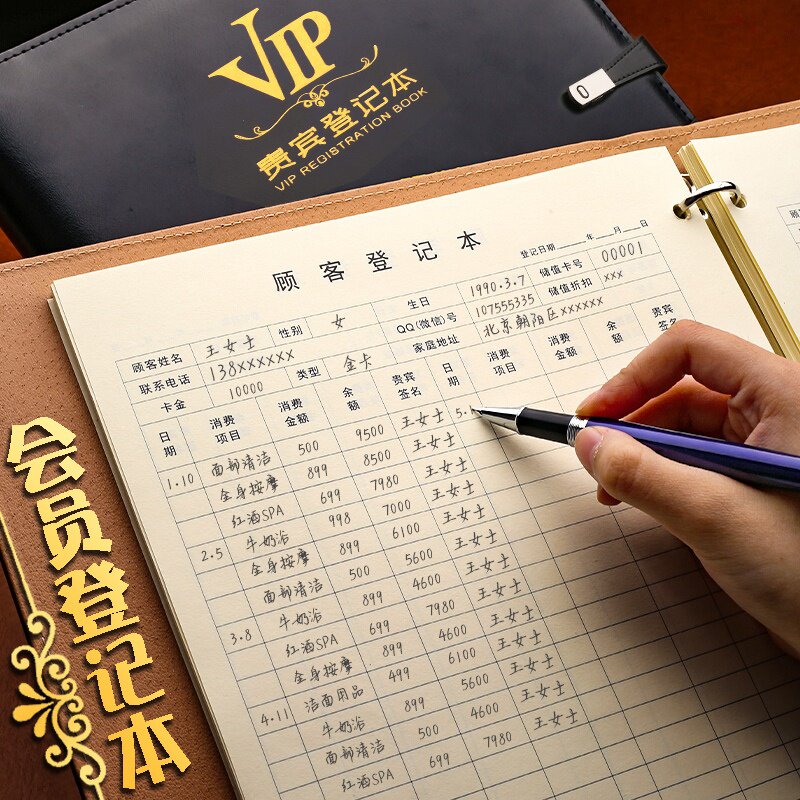 VIP
贵宾登记本
VIP REGISTRATION BOOK
顾客登记本
登记日期____年___月___日
顾客姓名 王女士 性别 女 生日 1990.3.7 储值卡号 00001
联系电话 138xxxxxx QQ(微信)号 107555335 储值折扣 xxx
卡金 10000 类型 金卡 家庭地址 北京朝阳区xxxxxx
日期 消费项目 消费金额 余额 贵宾签名 日期 消费项目 消费金额 余额 贵宾签名
1.10 面部清洁 500 9500 王女士 5.
全身按摩 899 8500 王女士
红酒SPA 699 7980 王女士
2.5 牛奶浴 998 7000 王女士
全身按摩 899 6100 王女士
面部清洁 500 5600 王女士
3.8 牛奶浴 899 4600 王女士
红酒SPA 699 7980 王女士
全身按摩 899 4600 王女士
4.11 洁面用品 499 6100 王女士
牛奶浴 899 5600 王女士
面部清洁 500 4600 王女士
红酒SPA 699 7980 王女士
会员登记本